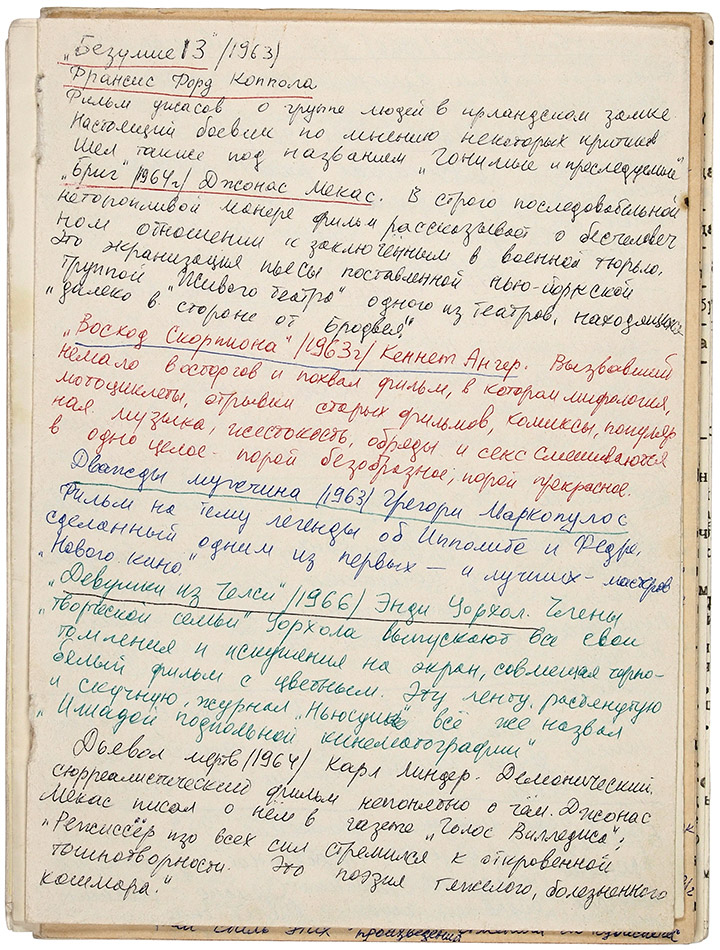 „Безумие 13" /1963/
Франсис Форд Коппола
Фильм ужасов о группе людей в ирландском замке.
Настоящий боевик по мнению некоторых критиков
Шёл также под названием „Гонимые и преследуемые"
„Бриг" /1964г/ Джонас Мекас. В строго последовательной
неторопливой манере фильм рассказывает о бесчеловеч
ном отношении к заключённым в военной тюрьме.
Это экранизация пьесы поставленной нью-йоркской
труппой „Живого театра" одного из театров, находящихся
„далеко в стороне от Бродвея".
„Восход Скорпиона" /1963г/ Кеннет Ангер. Вызвавший
немало восторгов и похвал фильм, в котором мифология,
мотоциклеты, отрывки старых фильмов, комиксы, популяр
ная музыка, жестокость, обряды и секс смешиваются
в одно целое - порой безобразное, порой прекрасное.
Дважды мужчина /1963/ Грегори Маркопулос
Фильм на тему легенды об Ипполите и Федре,
сделанный одним из первых — и лучших - мастеров
„Нового кино."
„Девушки из Челси" /1966/ Энди Уорхол. Члены
„творческой семьи" Уорхола выпускают все свои
томления и искушения на экран, совмещая чёрно-
белый фильм с цветным. Эту ленту, растянутую
и скучную, журнал „Ньюсуик" всё же назвал
„Илиадой подпольной кинематографии"
Дьявол мёртв /1964/ Карл Линдер. Демонический,
сюрреалистический фильм непонятно о чём. Джонас
Мекас писал о нём в газете „Голос Вилледжа";
„Режиссёр изо всех сил стремился к откровенной
тошнотворности. Это поэзия тяжелого, болезненного
кошмара."